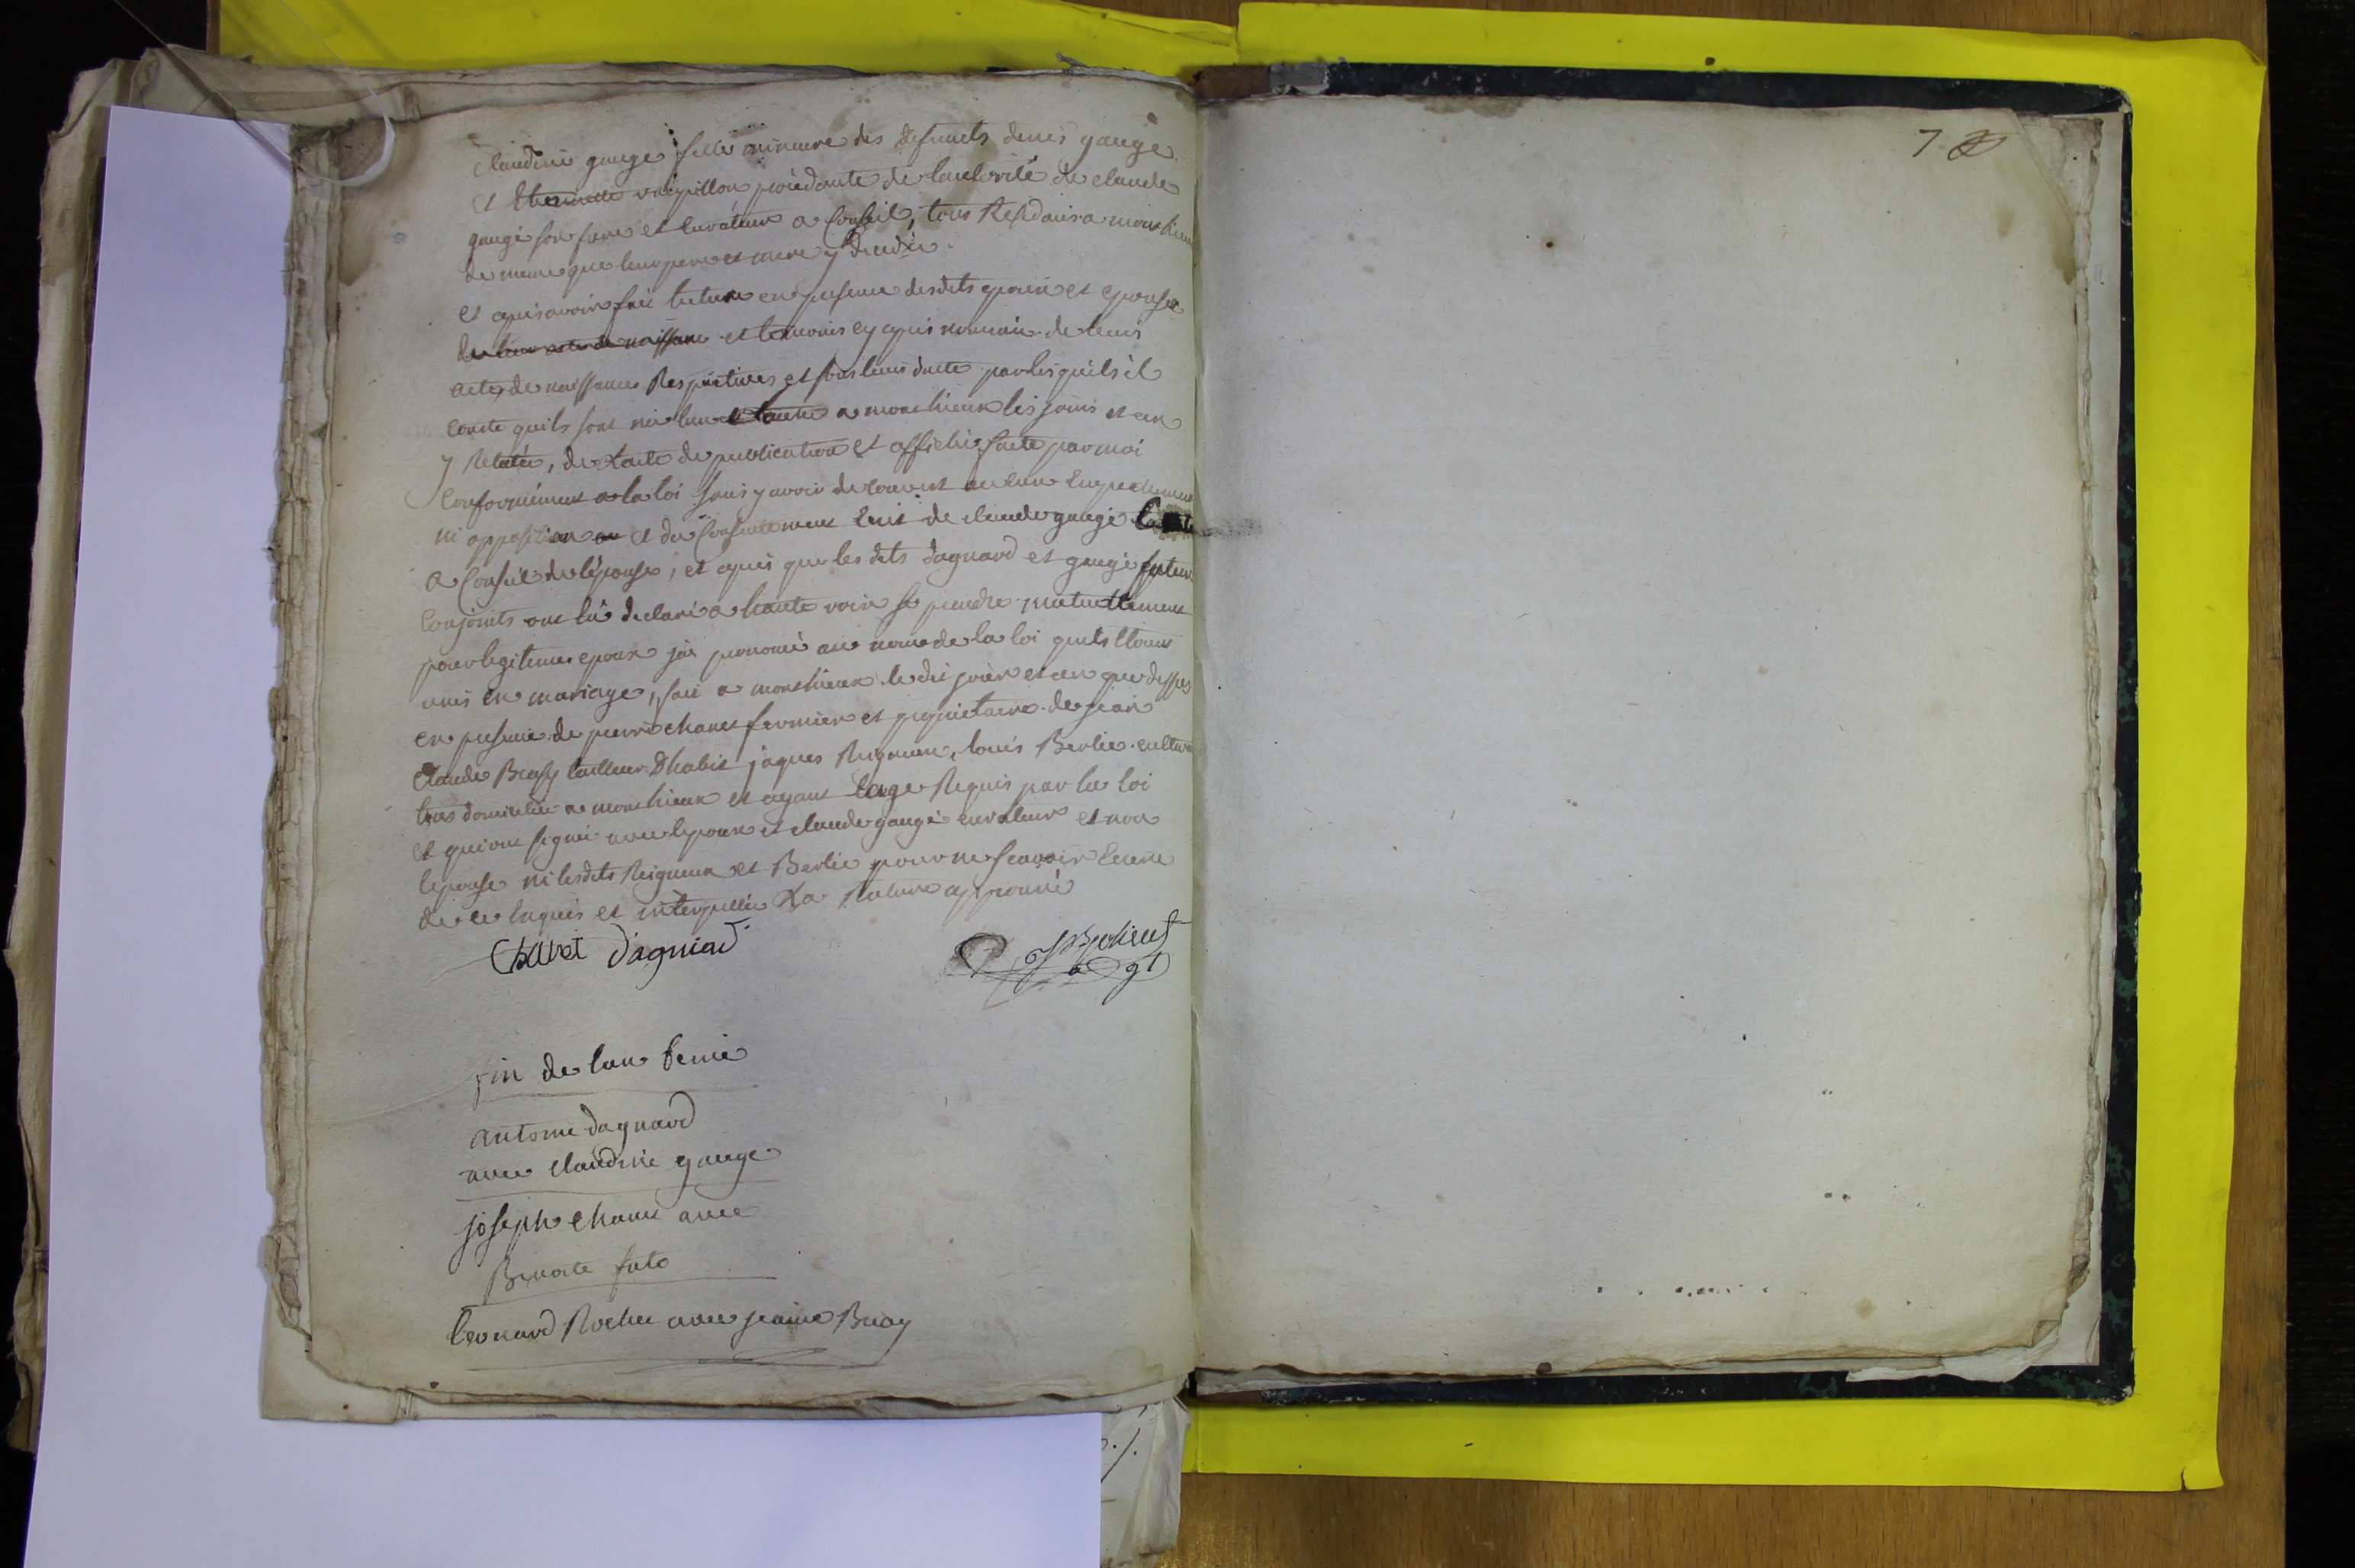 Claudine gauge fille mineure des defunts denis gauge
et vaupillon procedante de lauthorité de claude
gauge son frere et curateur a Conseil, tous Residans a monthieux
de meme que leur pere et mere y decedés.
et apres avoir fait lecture en presence desdits epoux et epouse
de leur acte de naissance et temoins cy apres nommés de leurs
actes de naissances Respectives et sous leurs datte par lesquels il
conste quils sont nés a monthieux les jours et an
y Relatés, de lacte de publication et affiche faite par moi
conformément a la loi sans y avoir decouvert aucun Empechement
ni opposition et du Consentement de claude gauge
a Conseil de lépouse, et apres que les dits dagnard et gauge futurs
Conjoints ont eu declaré a haute voix se prendre mutuellement
pour legitimes epoux jai prononcé au nom de la loi quils etoient
unis en mariage, fait a monthieux le dit jour et an que dessus
en presence de pierre chanet fermier et proprietaire de jean
Claude Bray tailleur Dhabit jaques Rigneux, louis Berlie
tous domiciliés a monthieux et ayant lage Requis par la loi
et qui ont signé avec lepoux et claude gauge curateur et non
lepouse ni lesdits Reigneux et Berlie pour ne scavoir
de ce Enquis et interpellés La Rature approuvé
Chanet dagniard
fin de lan 6eme
antoine dagnard
avec claudine gauge
joseph chanet avec
Benoite
leonard Rochet avec jeanne Bray
7